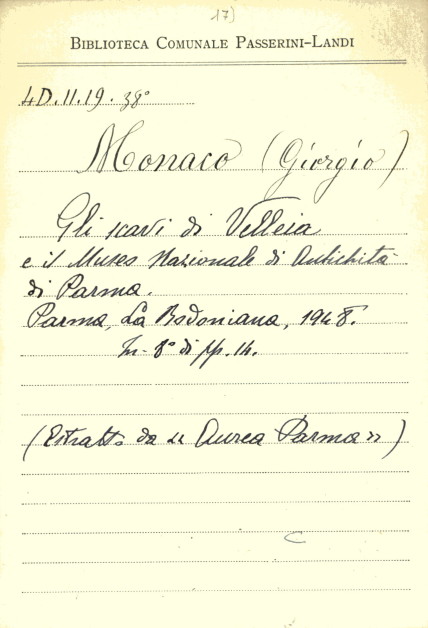 17)
BIBLIOTECA COMUNALE PASSERINI-LANDI
4D.II.19.38°
Monaco (Giorgio)
Gli scavi di Velleia
e il Museo Nazionale di Antichità
di Parma.
Parma, La Bodoniana, 1948.
In-8° di pp. 14.
(Estratto da « Aurea Parma »)